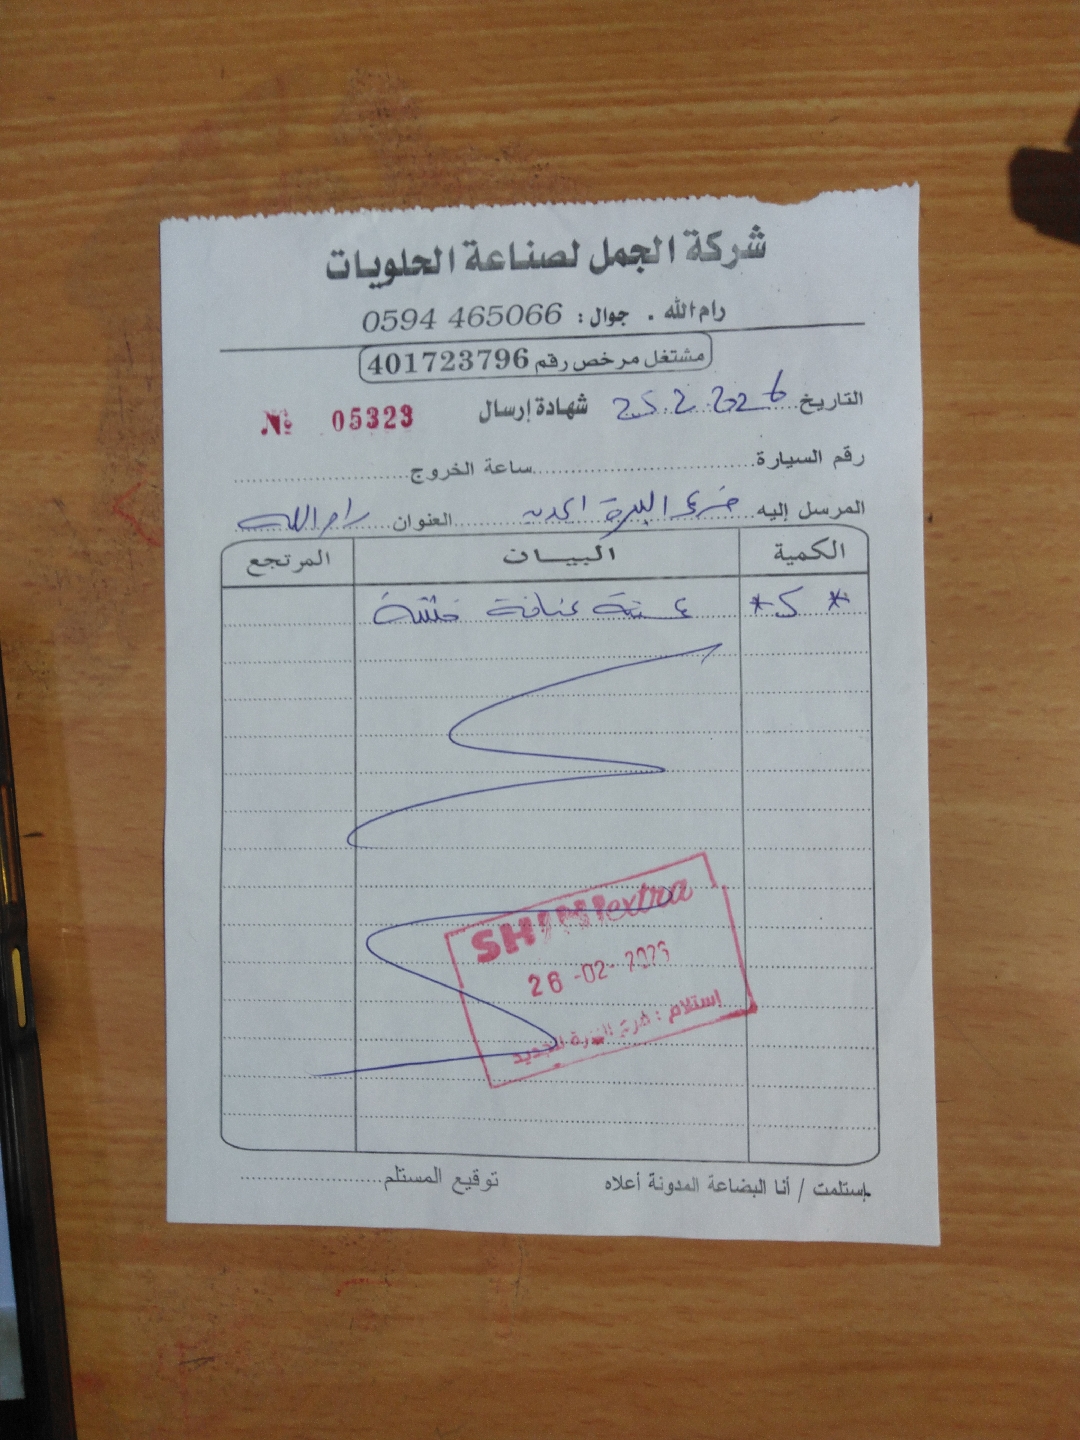 شركة الجمل لصناعة الحلويات
رام الله . جوال : 0594 465066
مشتغل مرخص رقم 401723796
التاريخ 25.2.2026 شهادة إرسال № 05323
رقم السيارة ساعة الخروج
المرسل إليه العنوان رام الله
الكمية البيان المرتجع
* 5 *
SHINI extra
26 -02- 2026
إستلام : فرع الجديد
إستلمت / أنا البضاعة المدونة أعلاه توقيع المستلم